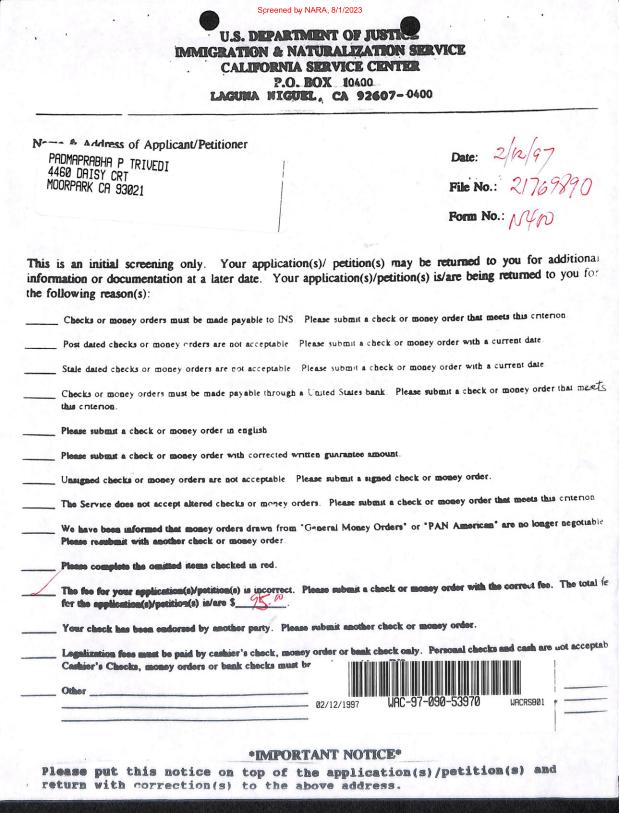 Screened by NARA, 8/1/2023
U.S. DEPARTMENT OF JUSTICE
IMMIGRATION & NATURALIZATION SERVICE
CALIFORNIA SERVICE CENTER
P.O. BOX 10400
LAGUNA NIGUEL, CA 92607-0400
Name & Address of Applicant/Petitioner
PADMAPRABHA P TRIVEDI
4460 DAISY CRT
MOORPARK CA 93021
Date: 2/12/97
File No.: 21769890
Form No.: N400
This is an initial screening only. Your application(s)/ petition(s) may be returned to you for additional
information or documentation at a later date. Your application(s)/petition(s) is/are being returned to you for
the following reason(s):
Checks or money orders must be made payable to INS Please submit a check or money order that meets this criterion
Post dated checks or money orders are not acceptable Please submit a check or money order with a current date
Stale dated checks or money orders are not acceptable Please submit a check or money order with a current date
Checks or money orders must be made payable through a United States bank. Please submit a check or money order that meets
this criterion.
Please submit a check or money order in english
Please submit a check or money order with corrected written guarantee amount.
Unsigned checks or money orders are not acceptable Please submit a signed check or money order.
The Service does not accept altered checks or money orders. Please submit a check or money order that meets this criterion
We have been informed that money orders drawn from "General Money Orders" or "PAN American" are no longer negotiable
Please resubmit with another check or money order
Please complete the omitted items checked in red.
The fee for your application(s)/petition(s) is incorrect. Please submit a check or money order with the correct fee. The total fe
for the application(s)/petition(s) is/are $ 95.00 .
Your check has been endorsed by another party. Please submit another check or money order.
Legalization fees must be paid by cashier's check, money order or bank check only. Personal checks and cash are not acceptab
Cashier's Checks, money orders or bank checks must br
Other
02/12/1997 WAC-97-090-53970 WACRS801
*IMPORTANT NOTICE*
Please put this notice on top of the application(s)/petition(s) and
return with correction(s) to the above address.